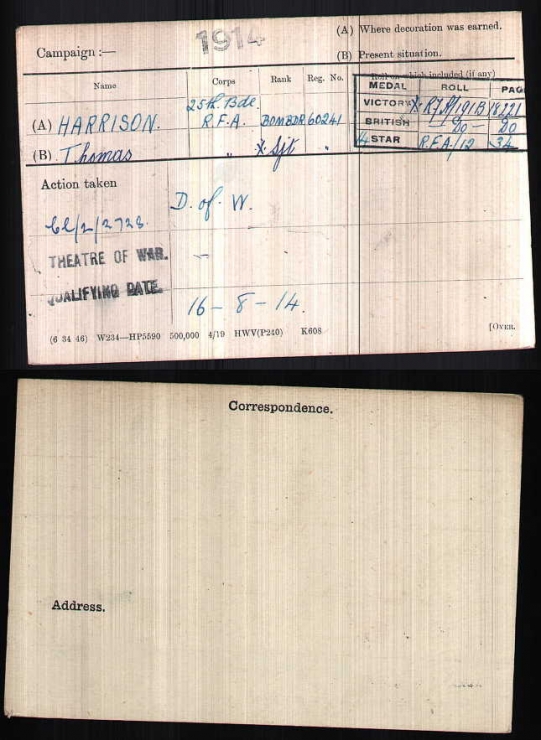 Campaign :—
1914
(A) Where decoration was earned.
(B) Present situation.
Name Corps Rank Reg. No. Roll on which included (if any)
MEDAL ROLL PAGE
25th. Bde.
(A) HARRISON. R.F.A. BOMBDR 60241
VICTORY X R.F.A/191B 18221
BRITISH -Do- Do
14 STAR R.F.A/12 34
(B) Thomas " X Sjt "
Action taken
D. of W.
THEATRE OF WAR.
QUALIFYING DATE.
16-8-14.
(6 34 46) W234—HP5590 500,000 4/19 HWV(P240) K608
[OVER.
Correspondence.
Address.